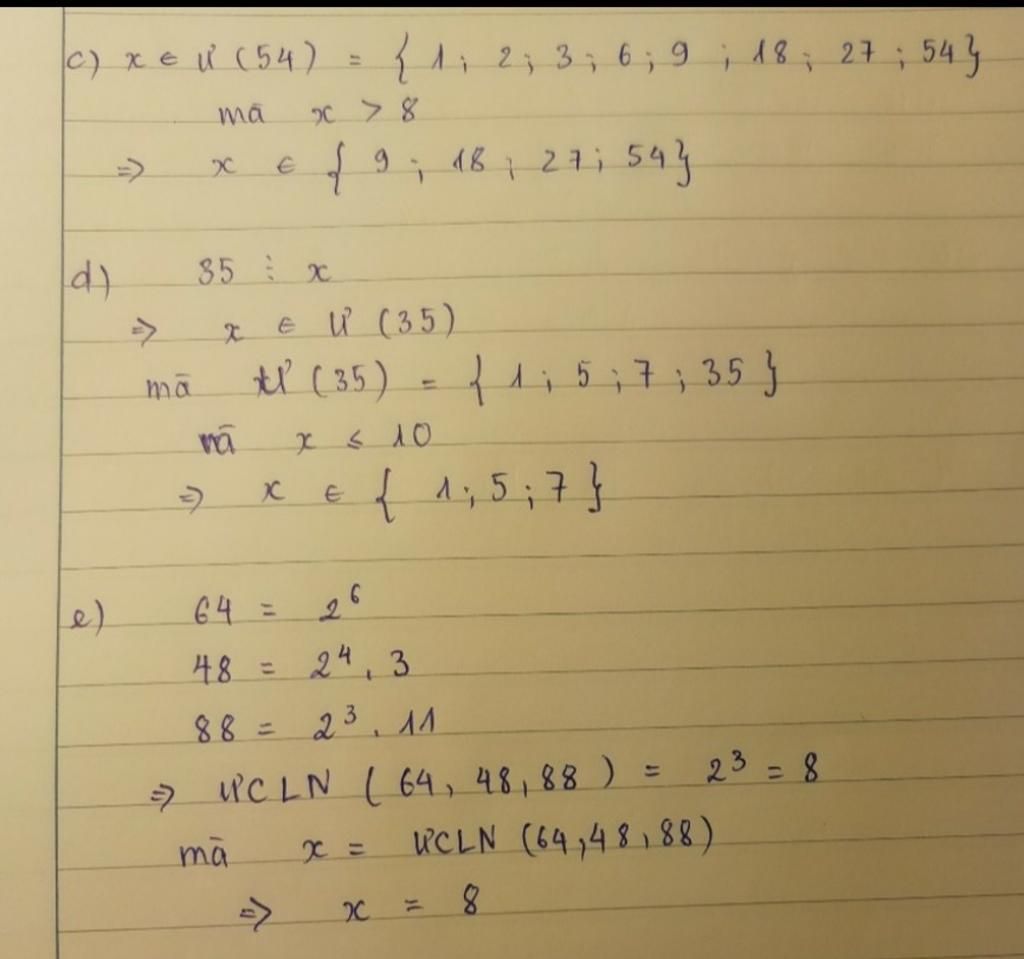 c) x ∈ Ư (54) = { 1; 2; 3; 6; 9; 18; 27; 54}
mā x > 8
⇒ x ∈ { 9; 18; 27; 54}
d) 35 ⋮ x
⇒ x ∈ Ư (35)
mā Ư (35) = { 1; 5; 7; 35 }
mā x ≤ 10
⇒ x ∈ { 1; 5; 7 }
e) 64 = 2⁶
48 = 2⁴ . 3
88 = 2³ . 11
⇒ ƯCLN ( 64, 48, 88 ) = 2³ = 8
mā x = ƯCLN (64, 48, 88)
⇒ x = 8